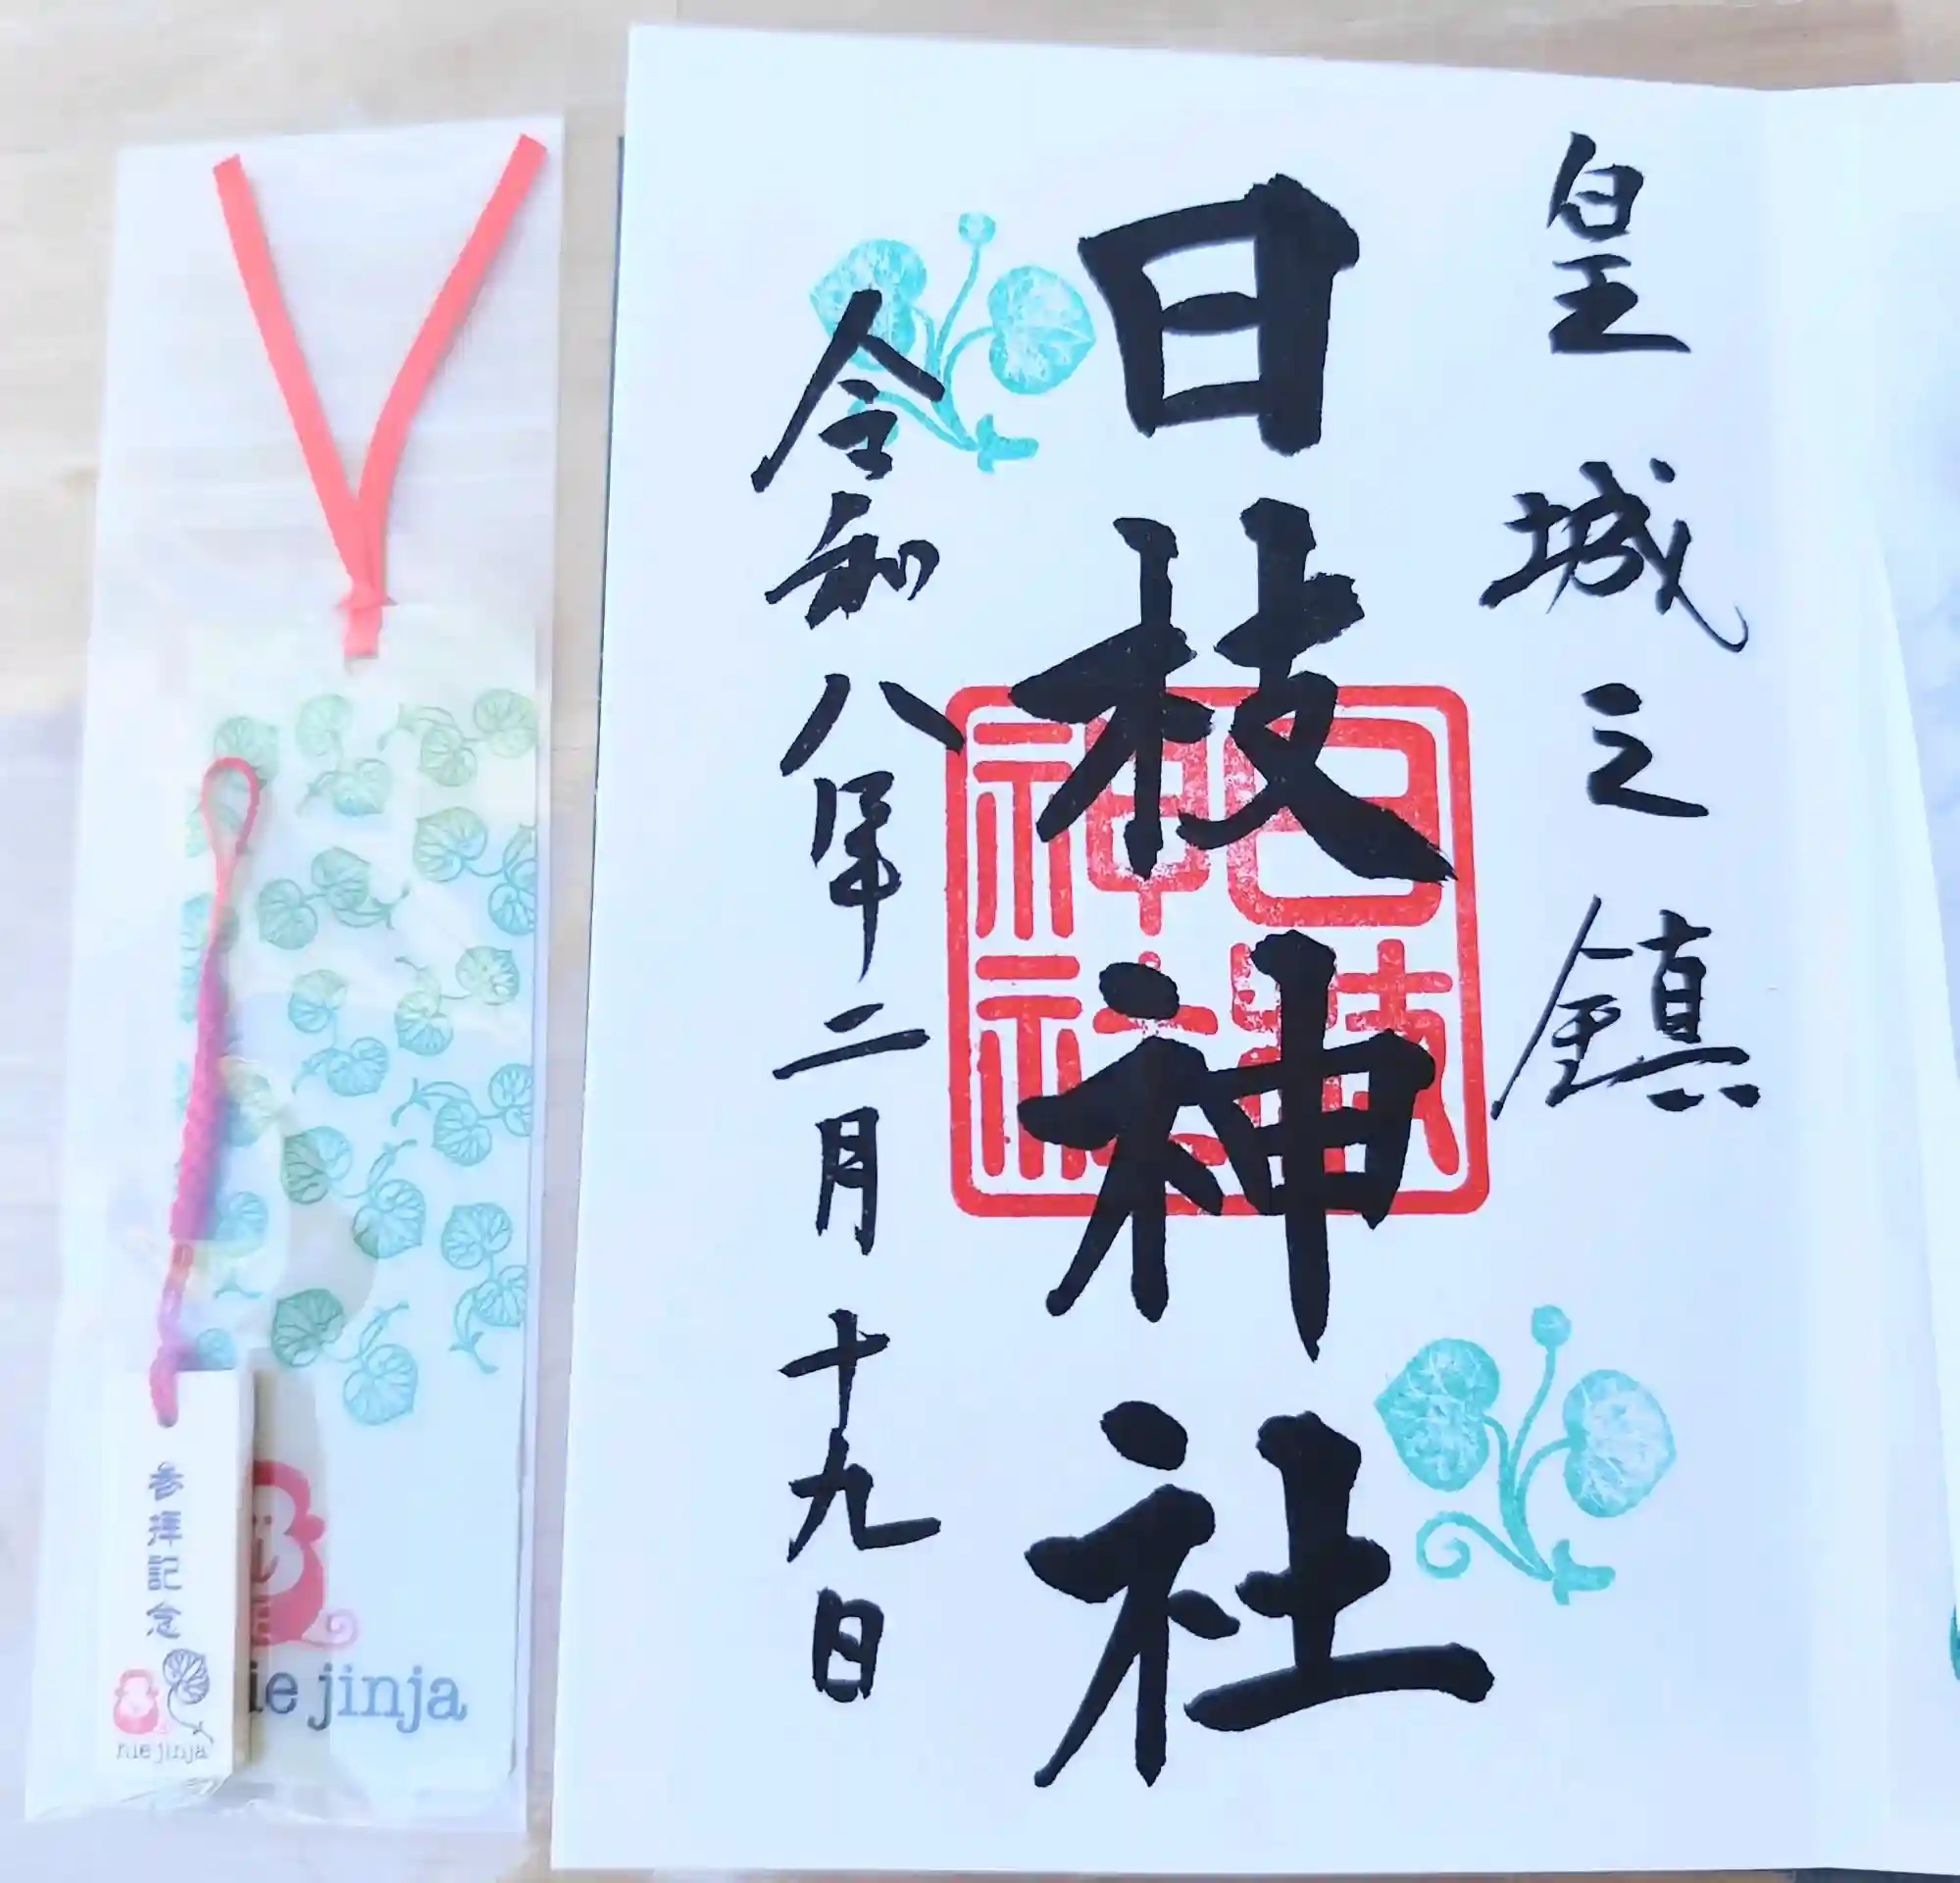 皇城之鎮
日枝神社
令和八年二月十九日
日枝
神社
参拝記念
hie jinja
ie jinja